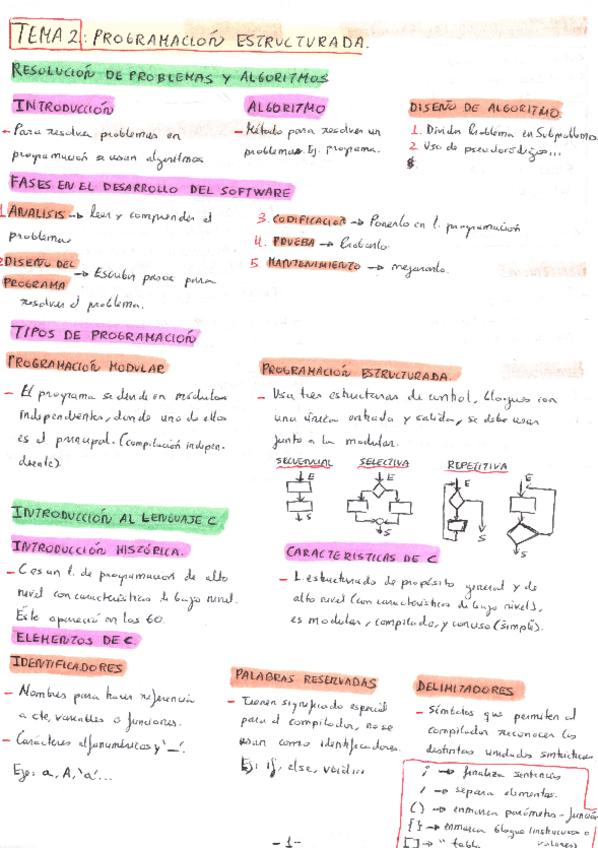 TEMA 2: PROGRAMACIÓN ESTRUCTURADA.
RESOLUCIÓN DE PROBLEMAS Y ALGORITMOS
INTRODUCCIÓN
- Para resolver problemas en
programación se usan algoritmos
ALGORITMO
- Método para resolver un
problema. Ej. programa.
DISEÑO DE ALGORITMO.
1. Dividir Problema en Subproblemas
2. Uso de pseudocódigos...
FASES EN EL DESARROLLO DEL SOFTWARE
1. ANALISIS → leer y comprender el
problema.
2. DISEÑO DEL
PROGRAMA → Escribir pasos para
resolver el problema.
3. CODIFICACION → Ponerlo en l. programación
4. PRUEBA → Probarlo.
5. MANTENIMIENTO → mejorarlo.
TIPOS DE PROGRAMACIÓN
PROGRAMACIÓN MODULAR
- El programa se divide en módulos
independientes, donde uno de ellos
es el principal. (compilación indepen-
diente).
PROGRAMACIÓN ESTRUCTURADA.
- Usa tres estructuras de control, bloques con
una única entrada y salida, se debe usar
junto a la modular.
SECUENCIAL
SELECTIVA
REPETITIVA
E
E
E
E
S
S
S
S
INTRODUCCIÓN AL LENGUAJE C.
INTRODUCCIÓN HISTÓRICA.
- C es un l. de programación de alto
nivel con características de bajo nivel.
Este apareció en los 60.
CARACTERISTICAS DE C
- L. estructurado de propósito general y de
alto nivel (con características de bajo nivel),
es modular, compilado, y conciso (simple).
ELEMENTOS DE C.
IDENTIFICADORES
- Nombres para hacer referencia
a cte, variables o funciones.
- Carácteres alfanuméricos y '_'.
Ejs: a, A, 'a'...
PALABRAS RESERVADAS
- Tienen significado especial
para el compilador, no se
usan como identificadores.
Ej: if, else, void...
DELIMITADORES
- Símbolos que permiten al
compilador reconocer las
distintas unidades sintácticas
; → finaliza sentencias
, → separa elementos.
() → enmarca parámetros - función
{} → enmarca bloque (instrucciones o
valores)
[] → " tabla
- 1 -